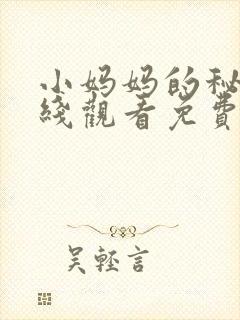 小妈妈的秘
綫觀看免費
吴輕言